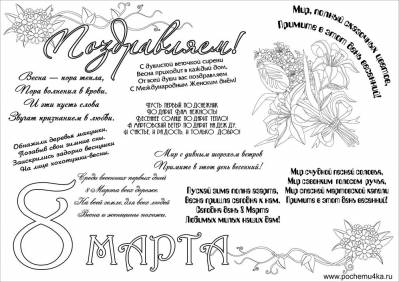 Поздравляем!
С душистой веточкой сирени
Весна приходит в каждый дом,
От всей души вас поздравляем
С Международным Женским днём!
Мир, полный сказочных цветов,
Примите в этот день весенний!
Весна — пора тепла,
Пора волненья в крови,
И эти пусть слова
Звучат признанием в любви.
Обнажили деревья макушки,
Позабыв свои зимние сны.
Заискрились задорно веснушки
На лице хохотушки-весны.
Пусть первый подснежник
Подарит вам нежность!
Весеннее солнце подарит тепло!
А мартовский ветер подарит надежду,
И счастье, и радость, и только добро!
Мир с дивным шорохом ветров
Примите в этот день весенний!
Среди весенних первых дней
8 Марта всех дороже.
На всей земле, для всех людей
Весна и женщины похожи.
Пускай зима полна азарта,
Весна пришла сегодня к нам.
Сегодня день 8 Марта
Любимых милых наших дам!
Мир с чудной песней соловья,
Мир с звонким голосом ручья,
Мир с песней мартовской капели
Примите в этот день весенний!
8 МАРТА
www.pochemu4ka.ru